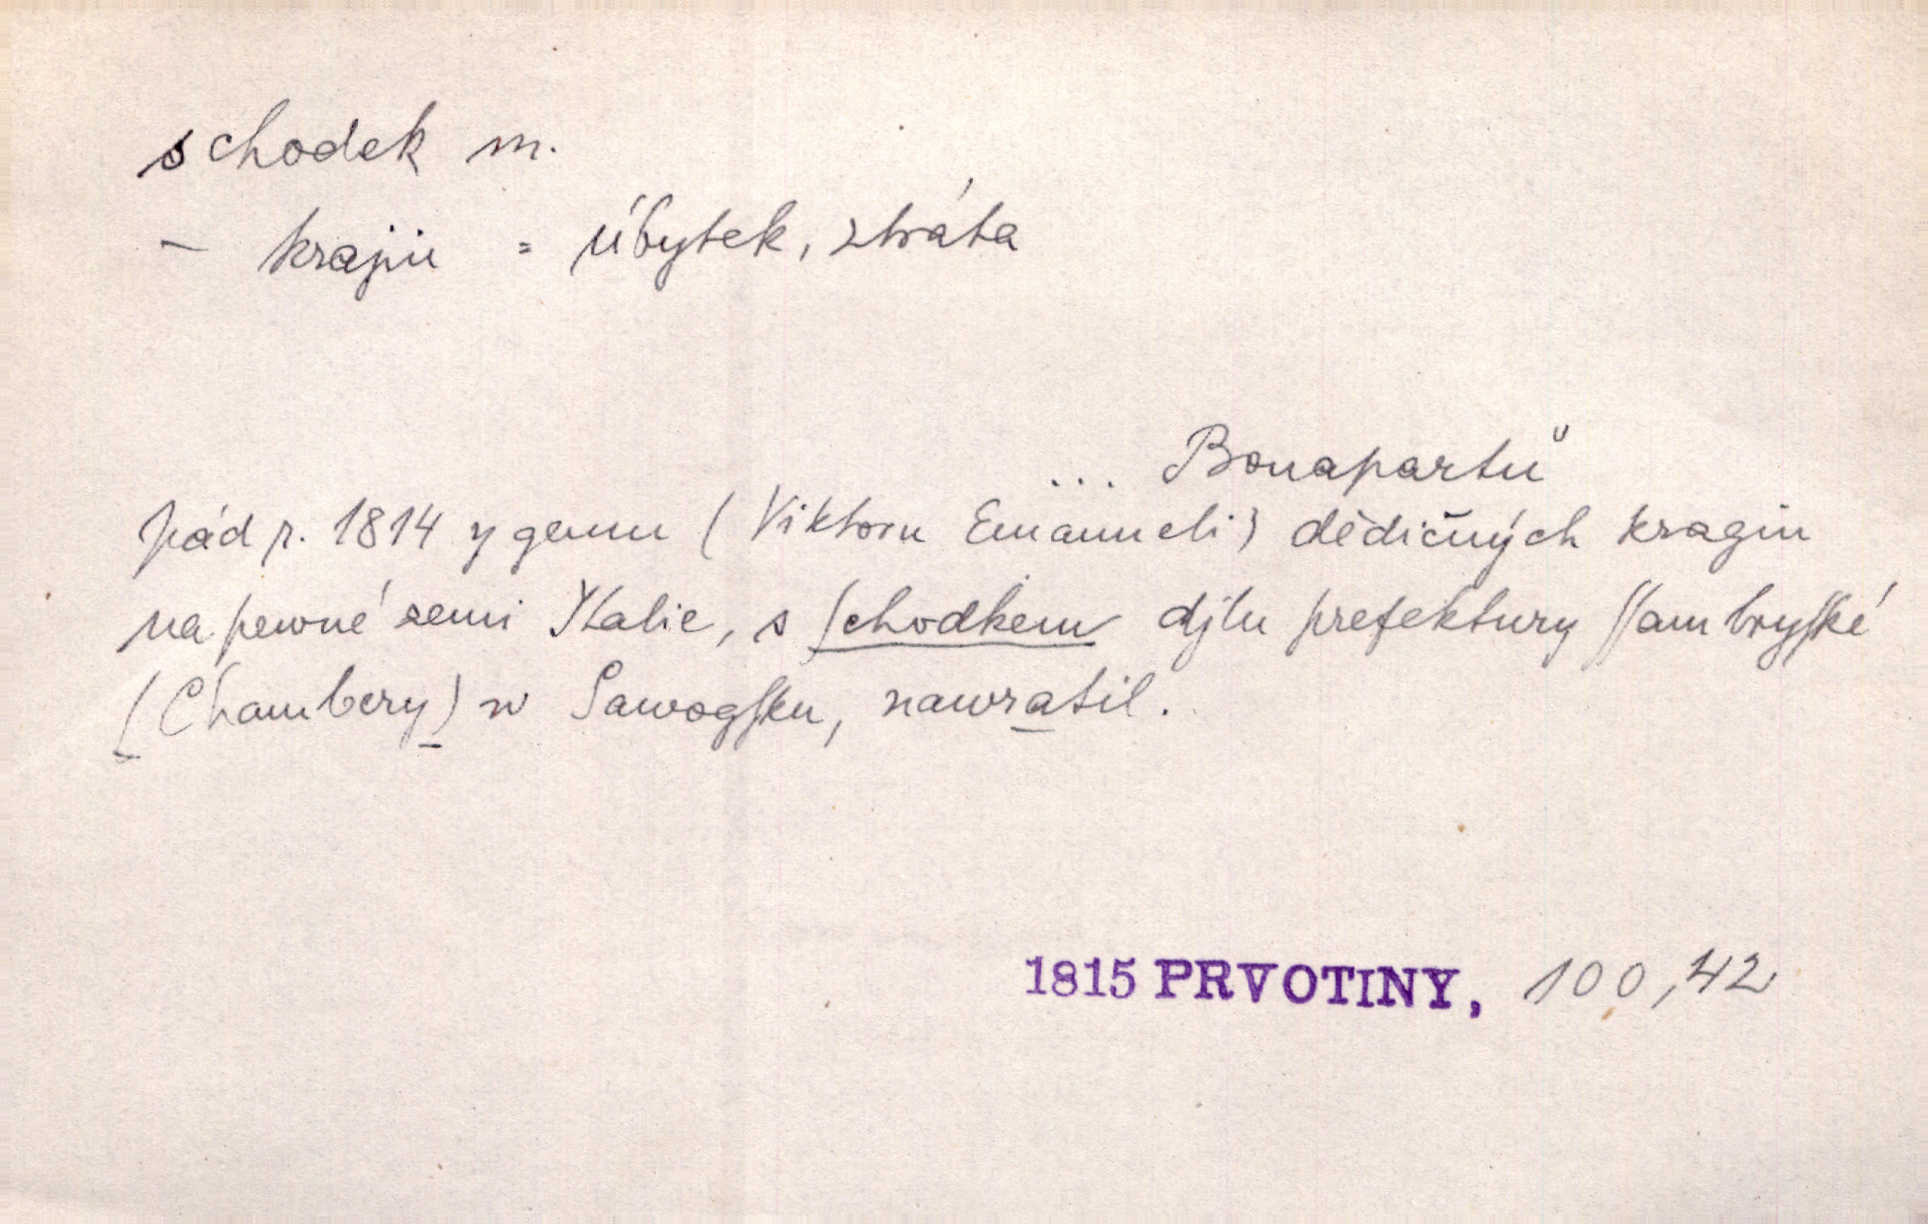 schodek m.
- krajin = úbytek, ztráta
... Bonapartů
pád r. 1814 y gemu (Viktoru Emanueli) dědičných kragin
na pewné zemi Ytalie, s ſchodkem djlu prefektury Sſambryſké
(Chambery) w Sawogſku, nawratil.
1815 PRVOTINY, 100,42